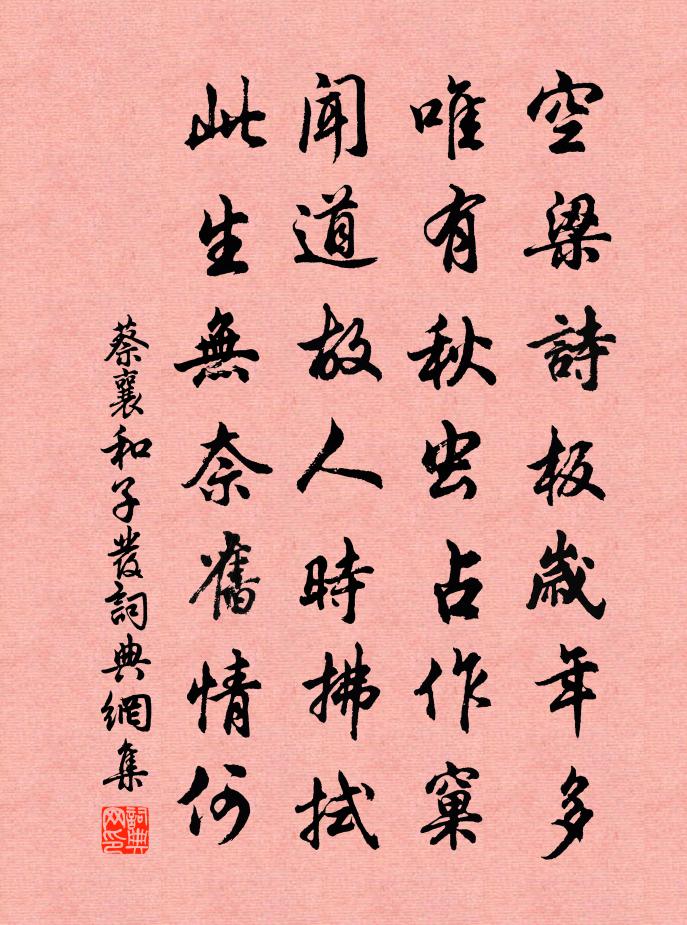 空梁詩板歲年多
唯有秋虫占作窠
聞道故人時拂拭
此生無奈舊情何
蔡襄和子發詞典網集
詞典网印